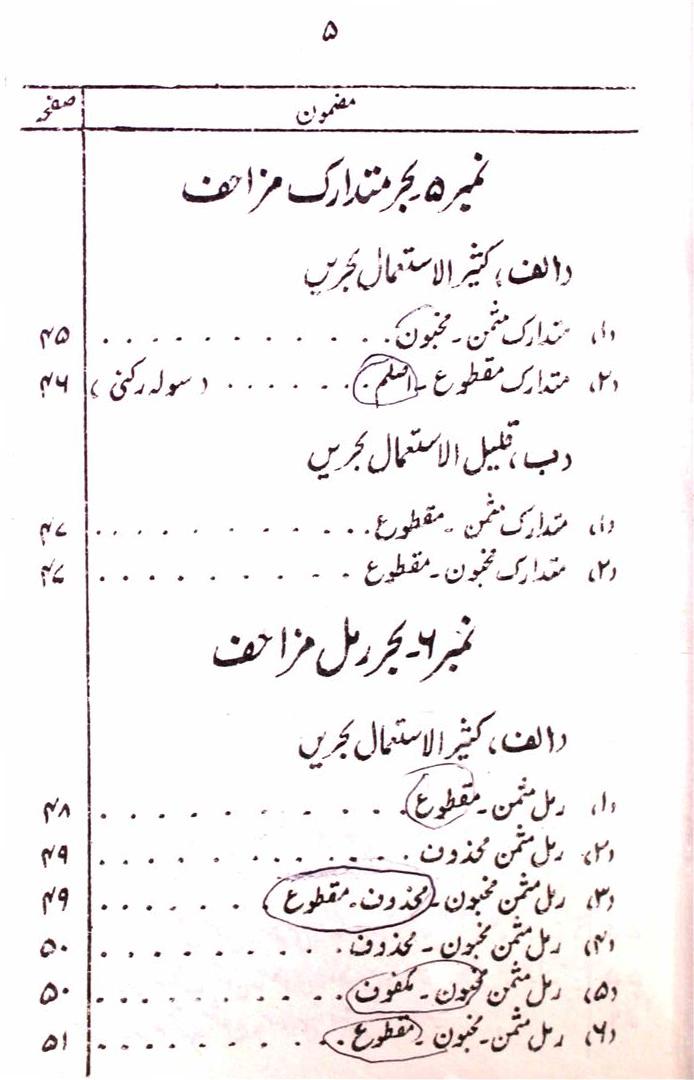 ۵
مضمون صفحہ
نمبر ۵۔ بحر متدارک مزاحف
(الف) کثیر الاستعمال بحریں
(۱) متدارک مثمن۔ مخبون . . . . . . . . . . . . ۴۵
(۲) متدارک مقطوع۔ اسلم . . . . . . . (سولہ رکنی) ۴۶
(ب) قلیل الاستعمال بحریں
(۱) متدارک مثمن۔ مقطوع . . . . . . . . . . . . ۴۷
(۲) متدارک مخبون۔ مقطوع . . . . . . . . . . . ۴۷
نمبر ۶۔ بحر رمل مزاحف
(الف) کثیر الاستعمال بحریں
(۱) رمل مثمن۔ مقطوع . . . . . . . . . . . ۴۸
(۲) رمل مثمن محذوف . . . . . . . . . . . . ۴۹
(۳) رمل مثمن مخبون۔ محذوف۔ مقطوع . . . . . . . ۴۹
(۴) رمل مثمن مخبون۔ محذوف . . . . . . . . . . ۵۰
(۵) رمل مثمن مخبون۔ مکفوف . . . . . . . . . . ۵۰
(۶) رمل مثمن۔ مخبون۔ مقطوع . . . . . . . . . . ۵۱